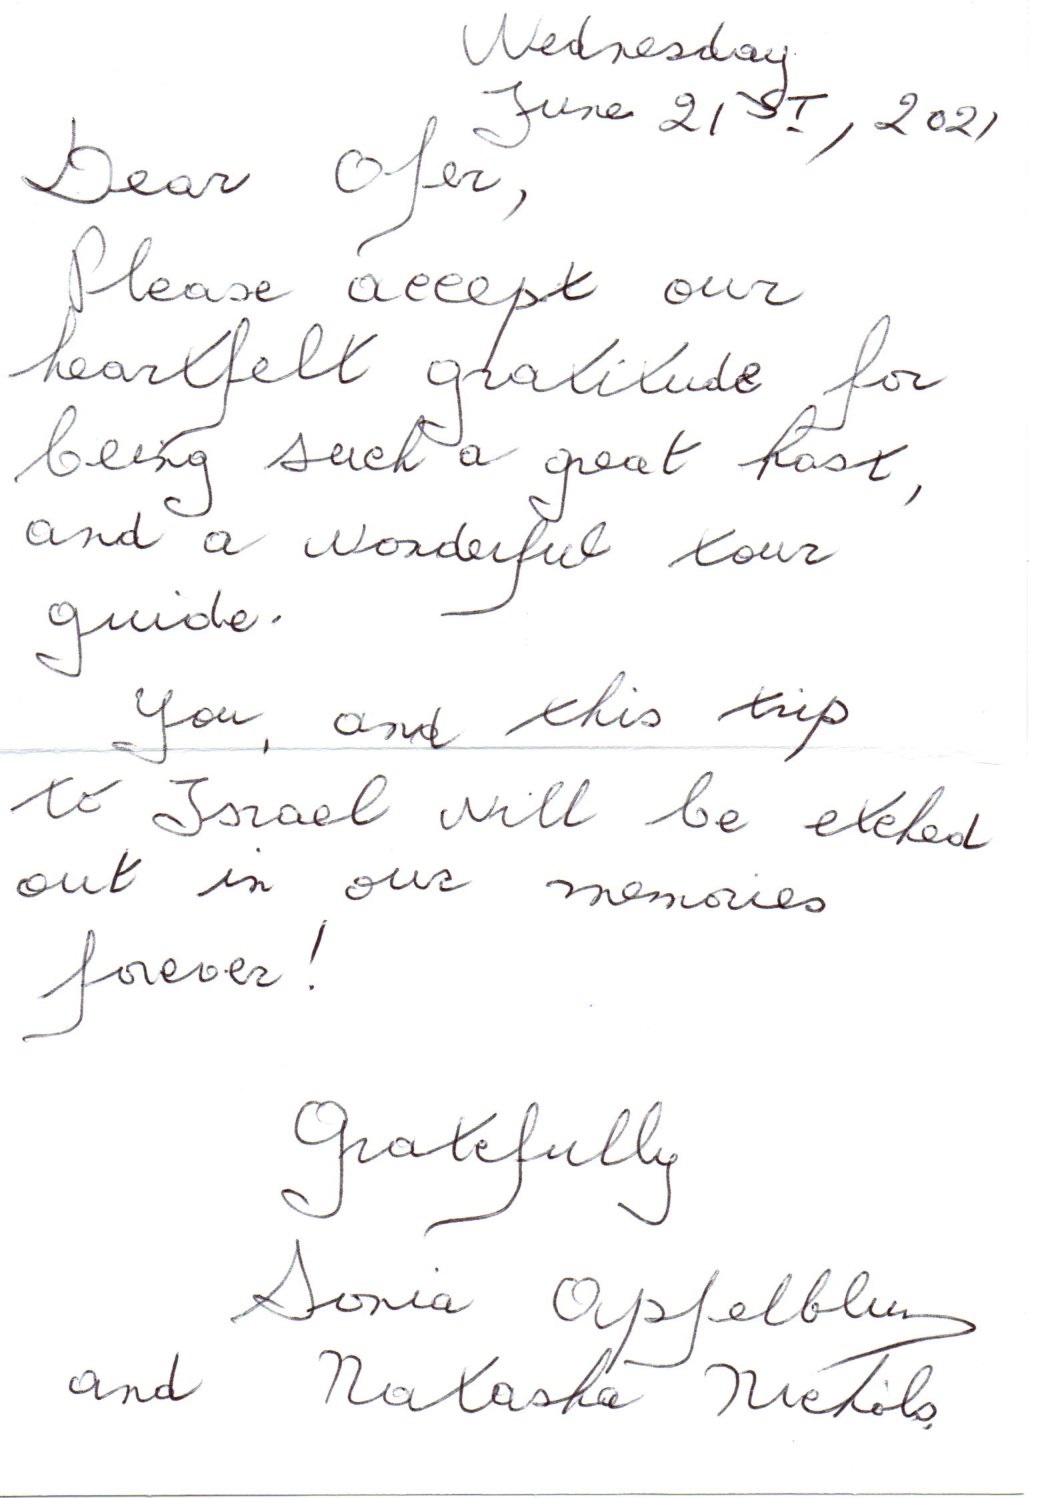 Wednesday
June 21ST, 2021
Dear Ofer,
Please accept our
heartfelt gratitude for
being such a great host,
and a wonderful tour
guide.
You, and this trip
to Israel will be etched
out in our memories
forever!
Gratefully
Sonia Apfelblum
and Natasha Nichols